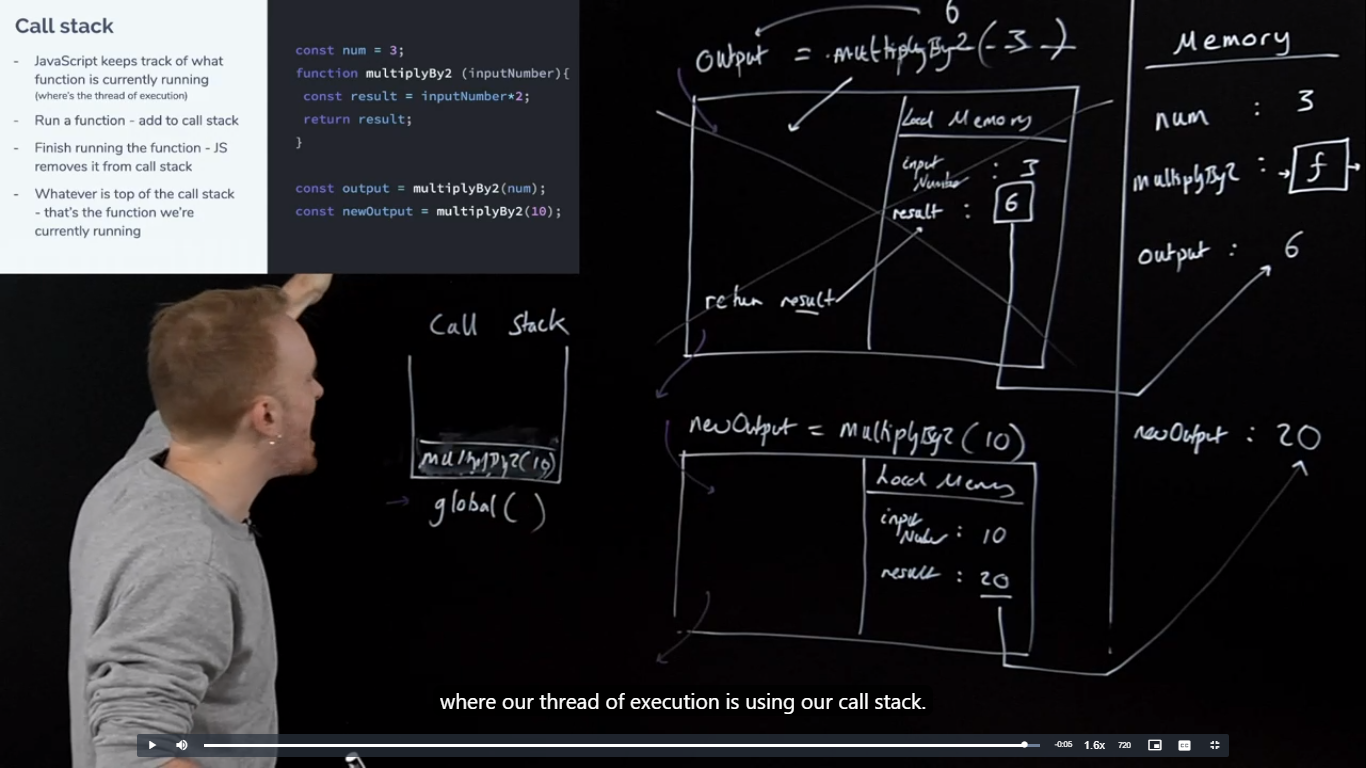 Call stack
- JavaScript keeps track of what
function is currently running
(where's the thread of execution)
- Run a function - add to call stack
- Finish running the function - JS
removes it from call stack
- Whatever is top of the call stack
- that's the function we're
currently running
const num = 3;
function multiplyBy2 (inputNumber){
const result = inputNumber*2;
return result;
}
const output = multiplyBy2(num);
const newOutput = multiplyBy2(10);
6
output = multiplyBy2(-3-)
Local Memory
input
Number : 3
result : 6
return result
Memory
num : 3
multiplyBy2 : f
output : 6
newOutput : 20
Call Stack
multiplyBy2(10)
global( )
newOutput = multiplyBy2(10)
Local Memory
input
Number : 10
result : 20
where our thread of execution is using our call stack.
-0:05 1.6x 720 CC